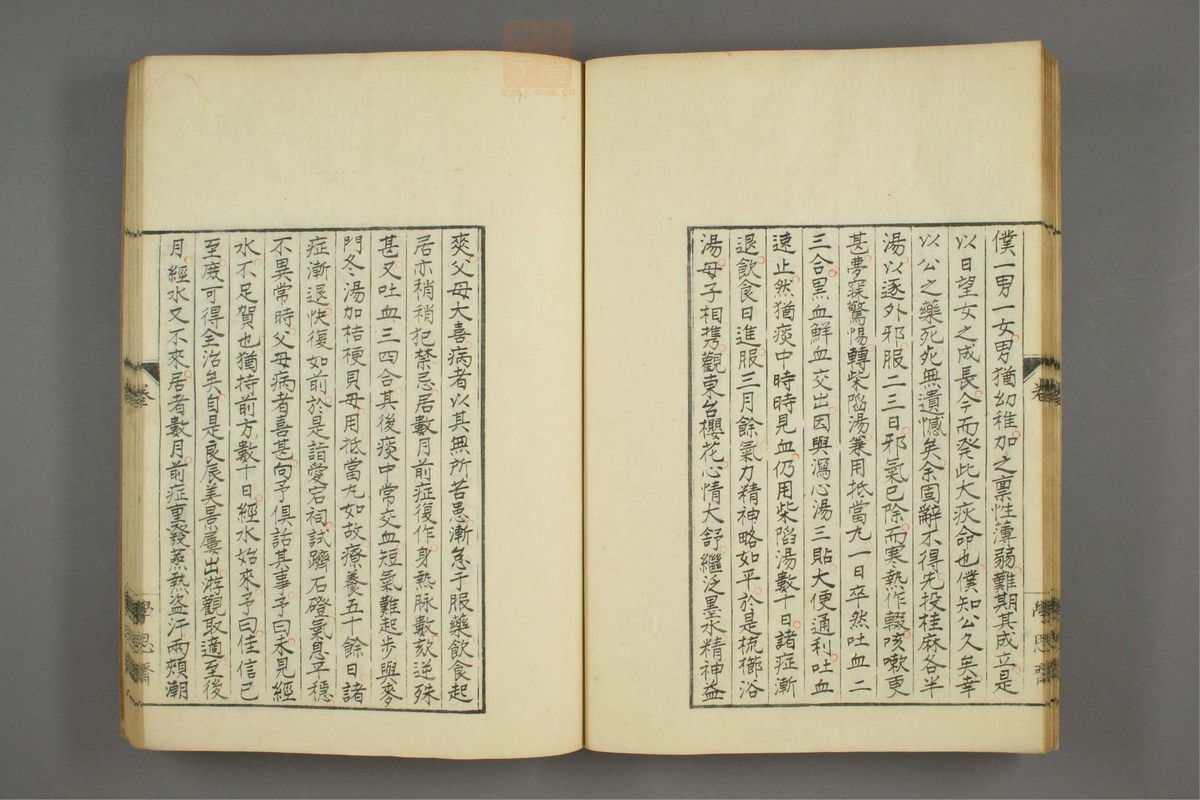 僕一男一女男猶幼稚加之禀性薄弱難期其成立是
以日望女之成長今而発此大疾命也僕知公久矣幸
以公之藥死死無遺憾矣余固辭不得先投桂麻各半
湯以逐外邪服二三日邪氣已除而寒熱泎輟咳嗽更
甚夢寐驚惕轉柴陷湯兼用抵當丸一日卒然吐血二
三合黒血鮮血交出因與瀉心湯三貼大便通利吐血
速止然猶痰中時時見血仍用柴陷湯數十日諸症漸
退飲食日進服三月餘氣力精神略如平於是梳櫛浴
湯母子相携觀東台櫻花心情大舒繼泛墨水精神益
爽父母大喜病者以其無所苦患漸怠于服藥飲食起
居亦稍稍犯禁忌居數月前症復作身熱脉數欬逆殊
甚又吐血三四合其後痰中常交血短氣難起步與麥
門冬湯加桔梗貝母用抵當丸如故療養五十餘日諸
症漸退快復如前於是詣愛宕祠試躋石磴氣息平穩
不異常時父母病者喜甚句予俱話其事予曰未見經
水不足賀也猶持前方數十日經水始來予曰佳信已
至庶可得全治矣自是良辰美景屢出游觀取適至後
月經水又不來居者數月前症重發蒸熱盜汗兩頰潮
學思齋
學思齋
zysj.com.cn